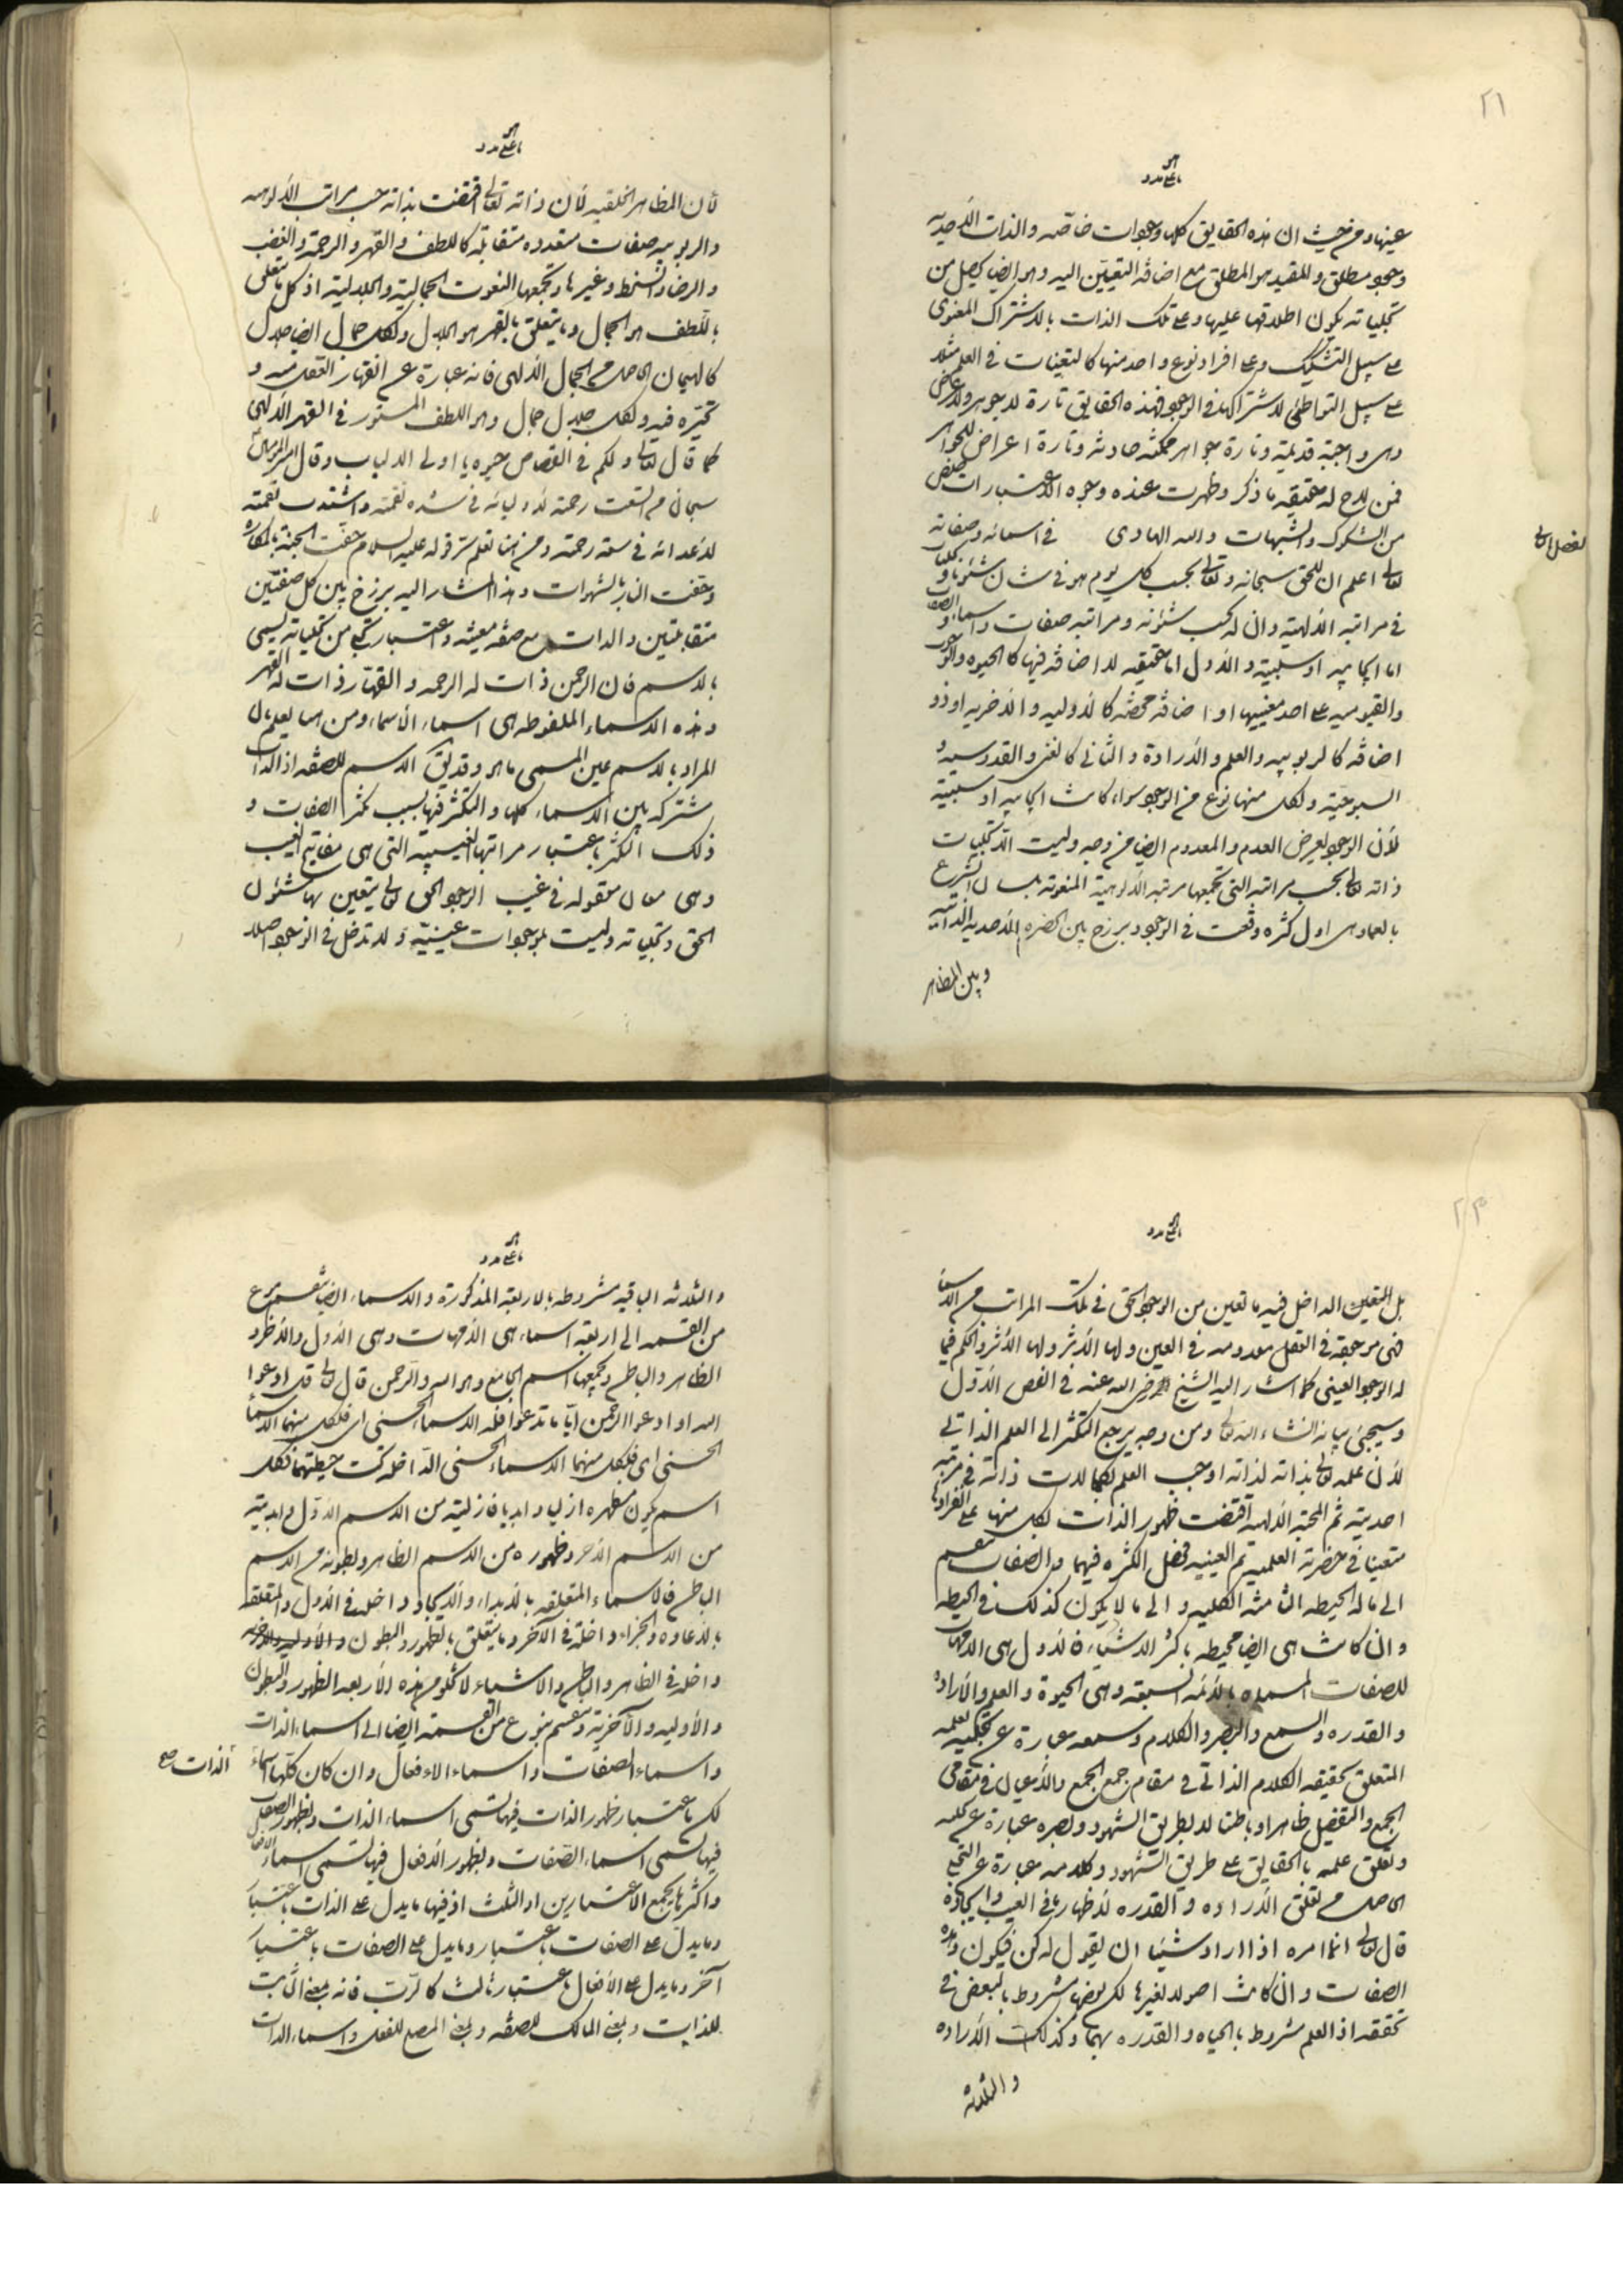 ٢١
عينها ومن حيث ان هذه الحقايق كلها وجودات خاصه والذات الأحديه
وجود مطلق والمقيد هو المطلق مع اضافة التعيّن اليه وهو ايضا يحصل من
تجلياته يكون اطلاقها عليها وعلى تلك الذات بالاشتراك المعنوى
على سبيل التشكيك وعلى افراد نوع واحد منها كالتعينات فى العلم مثلا
على سبيل التواطئ لاشتراكها فى الوجود فهذه الحقايق تارة لا جوهر ولا عرض
وهى واجبة قديمة وتارة جواهر ممكنه حادثه وتارة اعراض للجواهر
فمن لاح له حقيقة ما ذكر وظهرت عنده وجوه الاعتبارات خلص
من الشكوك والشبهات والله الهادى فى اسمائه وصفاته
الفصل الثانى
تعالى اعلم ان للحق سبحانه وتعالى بحسب كل يوم هو فى شان شئونا وتجليات
فى مراتبه الألهية وان له بحسب شئونه ومراتبه صفات واسماء والصفات
اما ايجابيه او سلبية والأول اما حقيقيه لا اضافة فيها كالحيوه والوجوب
والقيوميه على احد معنييها او اضافة محضه كالأوليه والأخريه او ذو
اضافه كالربوبيه والعلم والأرادة والثانى كالغنى والقدوسيه و
السبوحية ولكل منها نوع من الوجود سواء كانت ايجابيه او سلبية
لأن الوجود يعرض العدم والمعدوم ايضا من وجه وليست الا تجليات
ذاته تعالى بحسب مراتبه التى تجمعها مرتبة الألوهية المنعوته بلسان الشرع
بالعماء وهى اول كثره وقعت فى الوجود وبرزخ بين الحضره الأحديه الذاتيه
وبين المظاهر
بين المظاهر الخلقيه لأن ذاته تعالى اقتضت بذاته حسب مراتب الألوهيه
والربوبيه صفات متعدده متقابله كاللطف والقهر والرحمة والغضب
والرضا والسخط وغيرها وتجمعها النعوت الجماليه والجلالية اذ كل ما يتعلق
باللطف هو الجمال وما يتعلق بالقهر هو الجلال ولكل جمال ايضا جلال
كالهيمان الحاصل من الجمال الألهى فانه عبارة عن انقهار العقل منه و
تحيّره فيه ولكل جلال جمال وهو اللطف المستور فى القهر الألهى
كما قال تعالى ولكم فى القصاص حيوه يا اولى الالباب وقال امير المؤمنين
سبحان من اتسعت رحمته لأوليائه فى شده نقمته واشتدت نقمته
لأعدائه فى سعة رحمته ومن هنا تعلم سر قوله عليه السلام حفت الجنة بالمكاره
وحفت النار بالشهوات وهذا المشار اليه برزخ بين كل صفتين
متقابلتين والذات مع صفه معينه واعتبار تجلى من تجلياته تسمى
بالاسم فان الرحمن ذات له الرحمه والقهار ذات له القهر
وهذه الاسماء الملفوظه هى اسماء الأسماء ومن هنا يعلم ان
المراد بالاسم عين المسمى ما هو وقد يق الاسم للصفه اذ الذات
مشتركه بين الاسماء كلها والتكثر فيها بسبب تكثر الصفات و
ذلك التكثر باعتبار مراتبها الغيبيه التى هى مفاتيح الغيب
وهى معان معقوله فى غيب الوجود الحق تعالى يتعين بها شئون
الحق وتجلياته وليست بموجودات عينية ولا تدخل فى الوجود اصلا
٢٣
بل التعين الداخل فيه ما تعين من الوجود الحق فى تلك المراتب من الاسماء
فهى موجوده فى العقل معدومه فى العين ولها الأثر ولها الأثر والحكم فيما
له الوجود العينى كما اشار اليه الشيخ رضى الله عنه فى الفص الأول
وسيجئ بيانه انشاء الله تعالى ومن وجه يرجع التكثر الى العلم الذاتى
لأن علمه تعالى بذاته لذاته اوجب العلم بكمالات ذاته فى مرتبه
احديته ثم المحبة الألهية اقتضت ظهور الذات بكل منها على انفرادها
متعينا فى حضرته العلميه ثم العينيه فحصل الكثره فيهما والصفات منقسم
الى ما له الحيطه التامه الكليه و الى ما لا يكون كذلك فى الحيطه
وان كانت هى ايضا محيطه باكثر الاشياء فالأول هى الامهات
للصفات المسماه بالأئمه السبعه وهى الحيوة والعلم والأرادة
والقدره والسمع والبصر والكلام وسمعه عبارة عن تجليه بعلمه
المتعلق بحقيقه الكلام الذاتى فى مقام جمع الجمع والأعيانى فى مقامى
الجمع والتفصيل ظاهرا وباطنا لا بطريق الشهود وبصره عبارة عن تجليه
وتعلق علمه بالحقايق على طريق الشهود وكلامه عبارة عن التجلى
الحاصل من تعلق الأراده والقدره لأظهار ما فى الغيب وايجاده
قال تعالى انما امره اذا اراد شيئا ان يقول له كن فيكون وهذه
الصفات وان كانت اصولا لغيرها لكن بعضها مشروط بالبعض فى
تحققه اذ العلم مشروط بالحياه والقدره بهما وكذلك الأراده
والثلاثه
والثلاثه الباقيه مشروطه بالاربعة المذكورة والاسماء ايضا تنقسم بنوع
من القسمه الى اربعة اسماء هى الأمهات وهى الأول والأخر و
الظاهر والباطن وتجمعها اسم الجامع وهو الله والرحمن قال تعالى قل ادعوا
الله او ادعوا الرحمن ايّا ما تدعوا فله الاسماء الحسنى اى فلكل منهما الاسماء
الحسنى اى فلكل منهما الاسماء الحسنى الداخله تحت حيطتهما فكل
اسم يكون مظهره ازليا و ابديا فازليته من الاسم الاوّل وابديته
من الاسم الأخر وظهوره من الاسم الظاهر وبطونه من الاسم
الباطن فالاسماء المتعلقه بالأبداء والأيجاد داخله فى الأول والمتعلقه
بالاعاده والجزاء داخلة فى الآخر وما يتعلق بالظهور والبطون والأوليه والاخريه
داخله فى الظاهر والباطن والاشياء لا تخلو من هذه الأربعه الظهور والبطون
والأوليه والآخرية وتنقسم بنوع من القسمه ايضا الى اسماء الذات
واسماء الصفات واسماء الافعال وان كان كلها اسماء
الذات صح
لكن باعتبار ظهور الذات فيها تسمى اسماء الذات وبظهور الصفات
فيها تسمى اسماء الصفات وبظهور الأفعال فيها تسمى اسماء الافعال
واكثرها يجمع الاعتبارين او الثلث اذ فيها ما يدل على الذات باعتبار
وما يدل على الصفات باعتبار وما يدل على الصفات باعتبار
آخر وما يدل على الأفعال باعتبار ثالث كالرّب فانه بمعنى الثابت
للذات وبمعنى المالك للصفه وبمعنى المصلح للفعل واسماء الذات